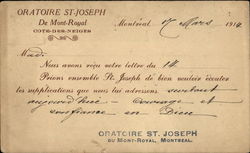 ORATOIRE ST-JOSEPH
De Mont-Royal
COTE-DES-NEIGES
Montréal 17 Mars 191
Nous avons reçu votre lettre du 14
Prions ensemble St. Joseph de bien vouloir écouter
les supplications que nous lui adressons surtout
aujourd'hui — Courage et
confiance en Dieu
ORATOIRE ST. JOSEPH
DU MONT-ROYAL, MONTREAL.